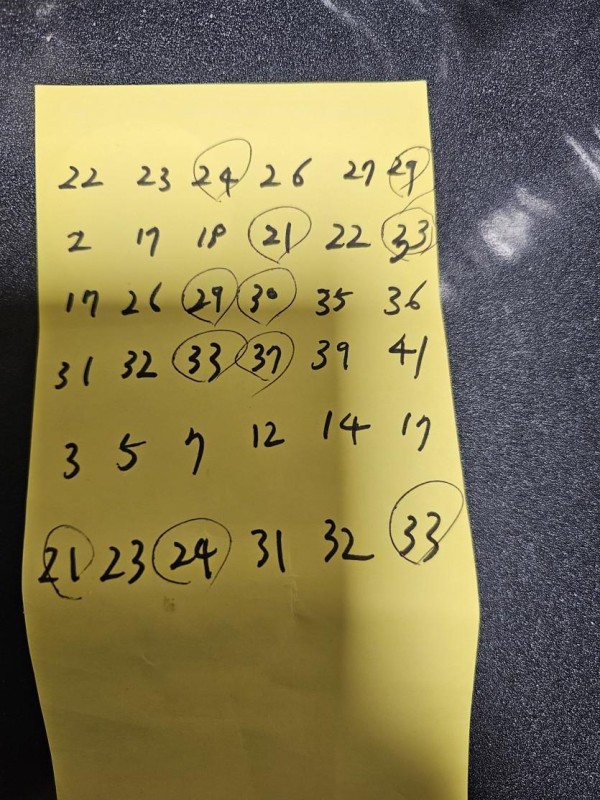 22 23 24 26 27 29
2 17 18 21 22 33
17 26 29 30 35 36
31 32 33 37 39 41
3 5 7 12 14 17
21 23 24 31 32 33